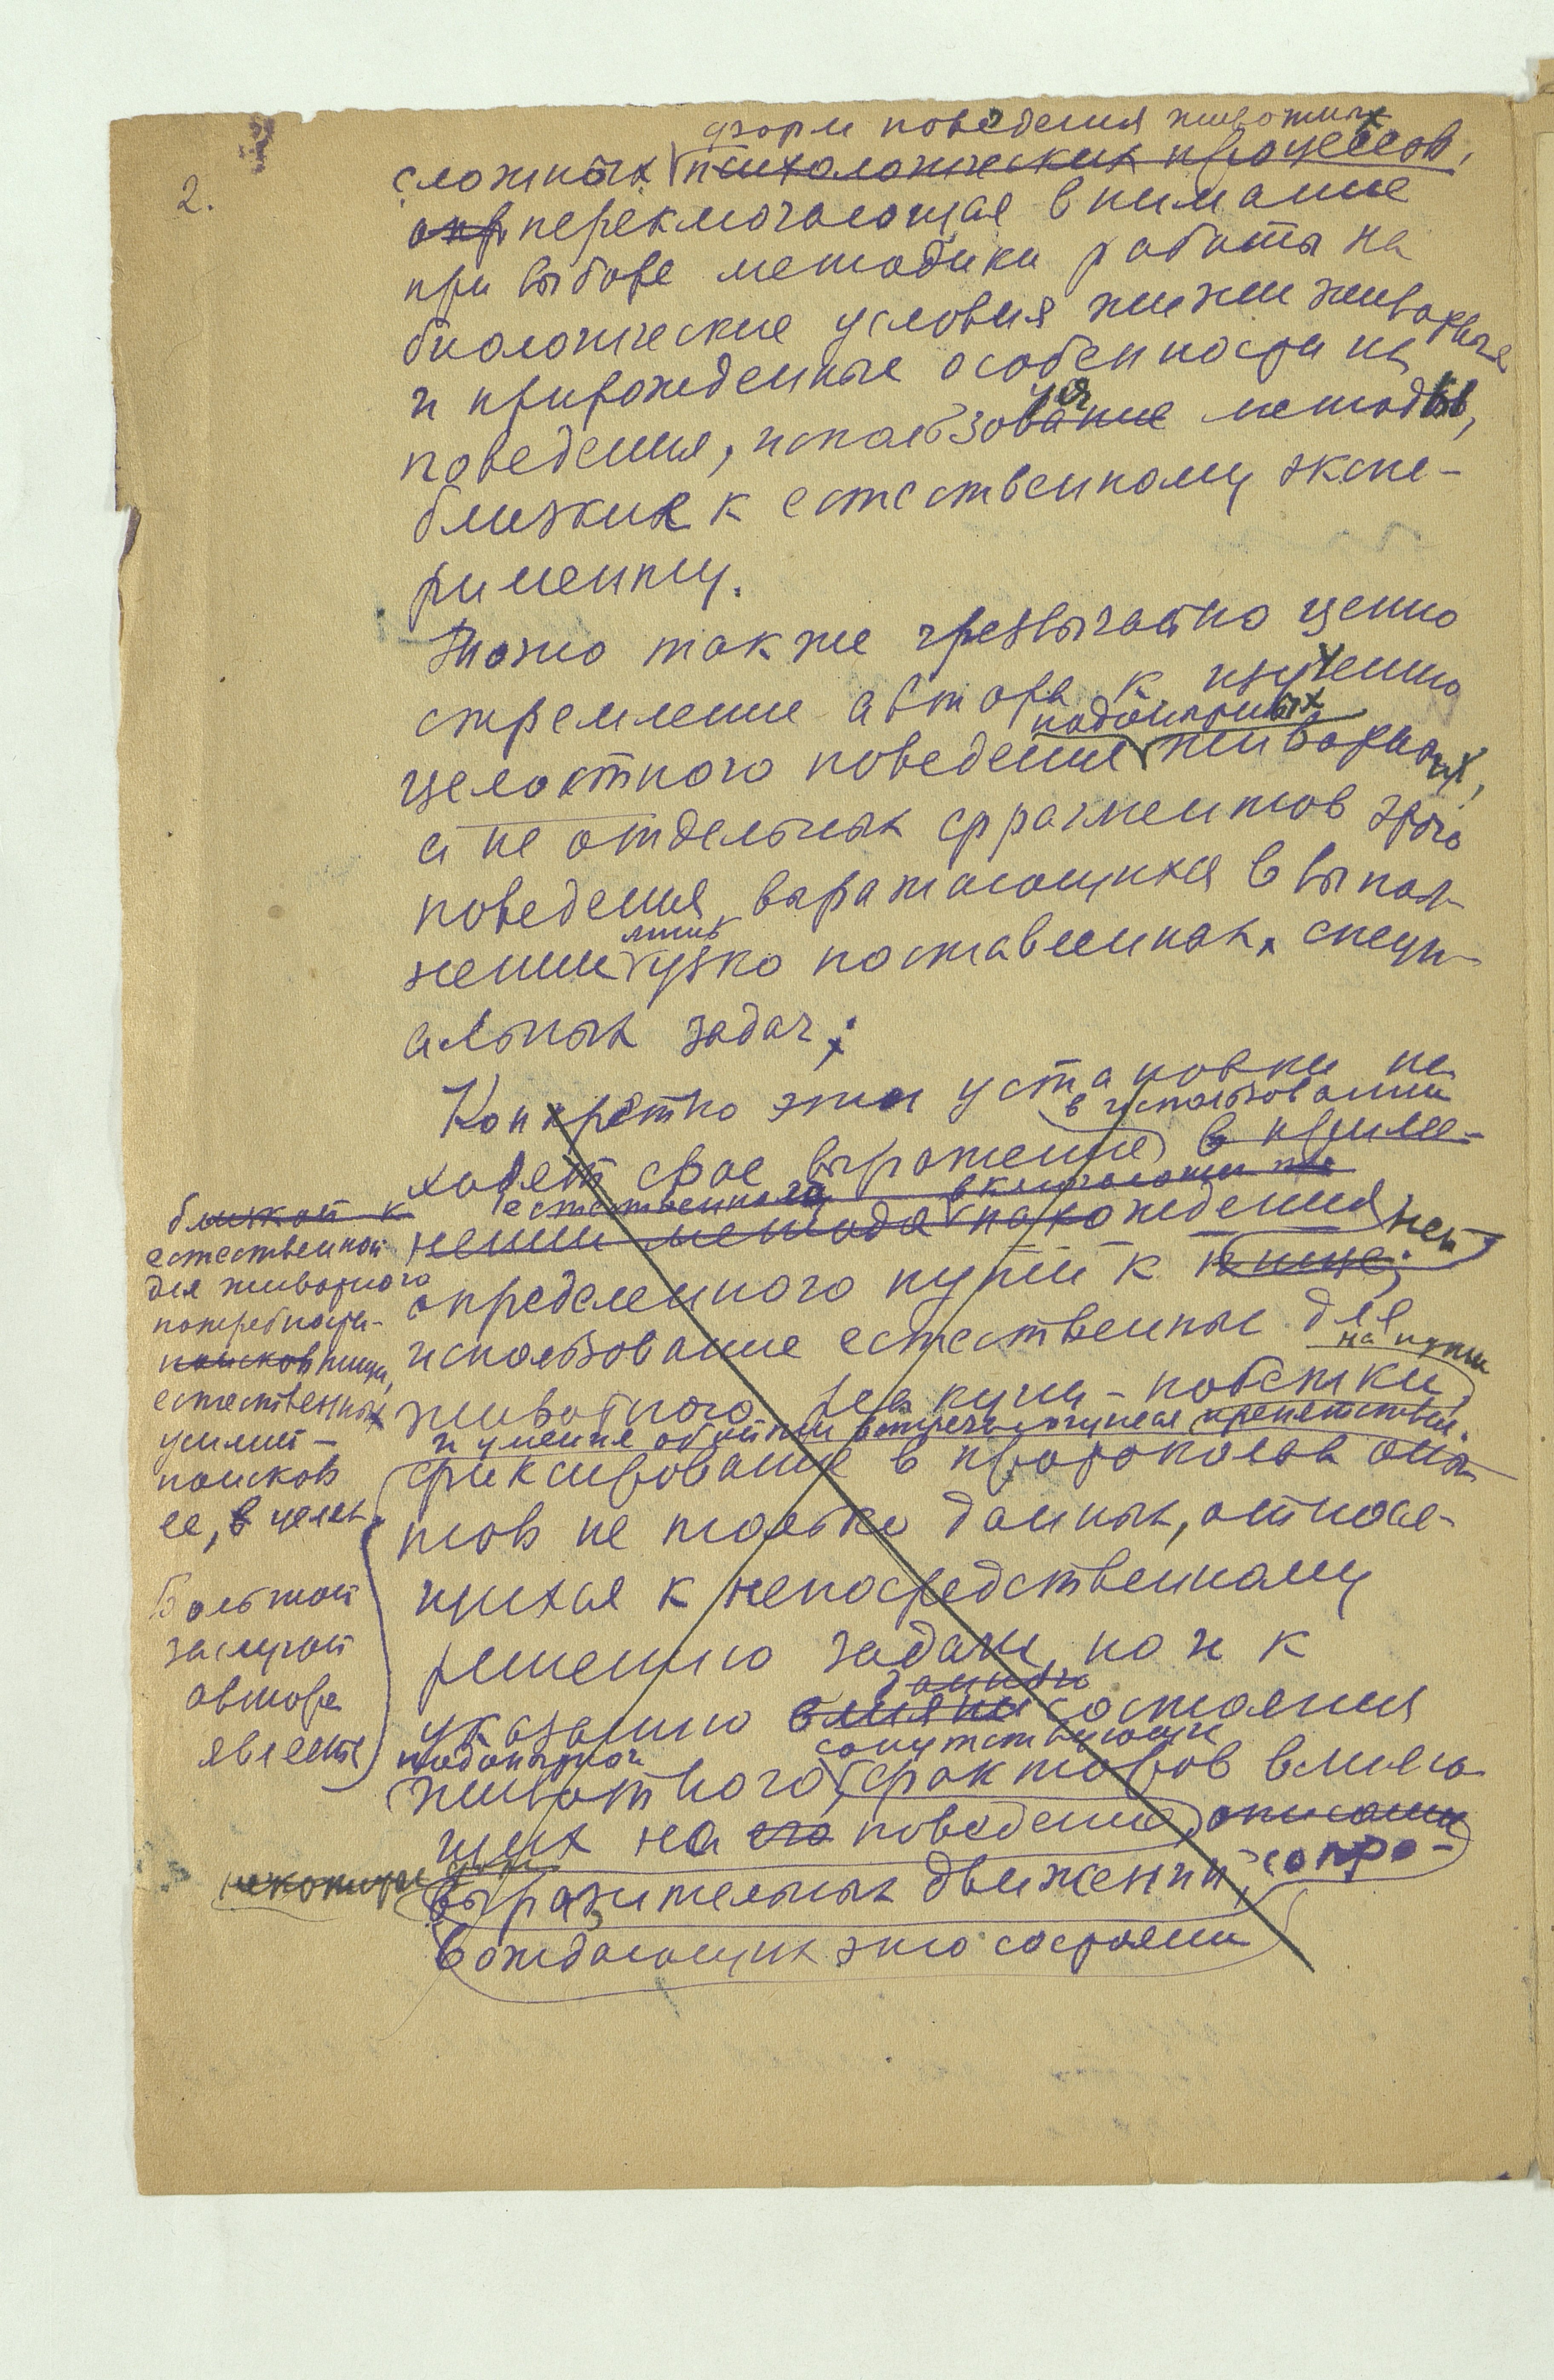 2.
форм поведения животных
сложных психологических процессов,
опр переключающая внимание
при выборе методики работы на
биологические условия жизни животных
и прирожденные особенности их
уя
поведения, использование методы,
близкие к естественному экспе-
рименту.
Можно также чрезвычайно ценно
стремление автора к изучению
подопытных
целостного поведения животных,
а не отдельных фрагментов этого
поведения, выражающихся в выпол-
лишь
нении узко поставленных, специ-
альных задач;
Конкретно эти установки на-
в использовании
ходят свое выражение в приме-
естественного включающий
нении метода нахождения
определенного пути к пище;
использование естественные для
на пути
животного
и умения обойти встречающиеся препятствия.
фиксирование в протоколах опы-
тов не только данных, относя-
щихся к непосредственному
решению задачи, но и к
данных
указанию влияни состояния
подопытного сопутствующих
животного, факторов влияю-
щих на его поведение, описании
некоторые
выразительных движений, сопро-
вождающих это состояни
близкой к
естественной
для животного
потребности-
поисков пищи,
естественных
усилий-
поисков
ее, в целях
Большой
заслугой
автора
является